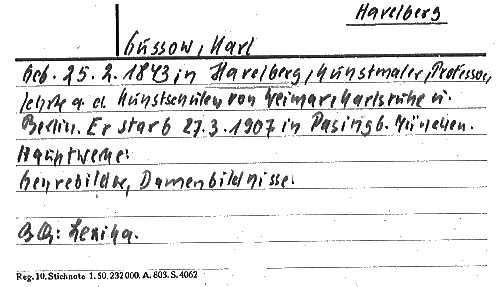 Havelberg
Gussow, Karl
Geb. 25.2.1843 in Havelberg, Kunstmaler, Professor,
lehrte a. d. Kunstschulen von Weimar, Karlsruhe u.
Berlin. Er starb 27.3.1907 in Pasing b. München.
Hauptwerke:
Genrebilder, Damenbildnisse.
BQ: Lexika.
Reg. 10. Stichnote 1. 50. 232000. A. 803. S. 4062